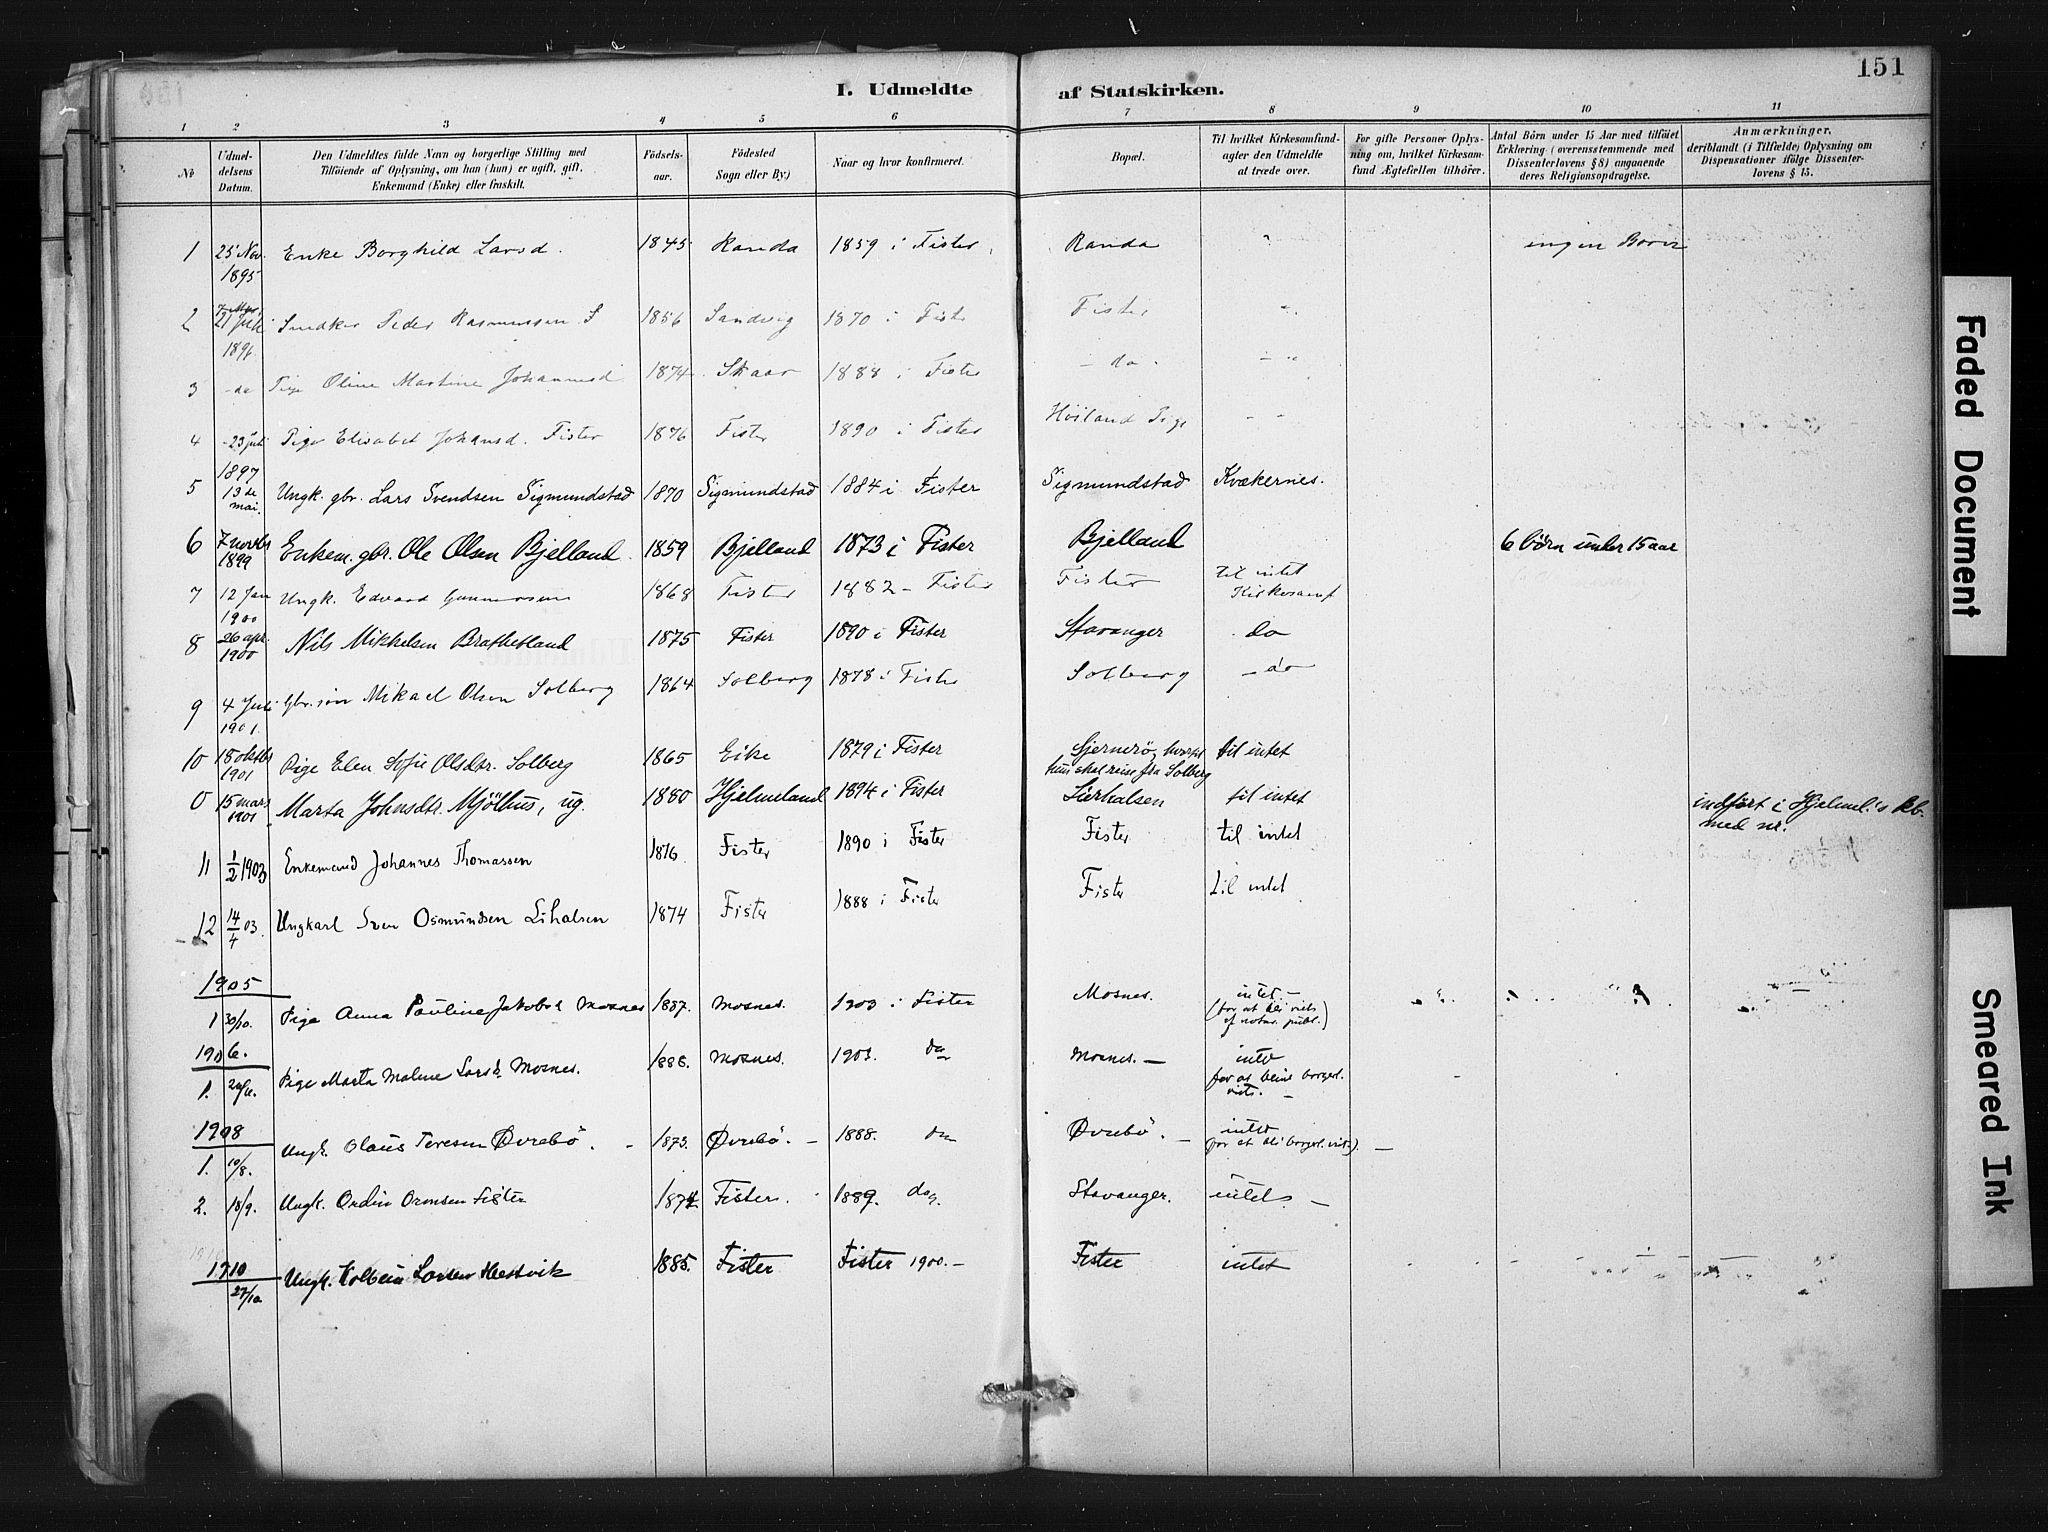 151
I. Udmeldte af Statskirken.
1 2 3 4 5 6 7 8 9 10 11
No
Udmel-
delsens
Datum.
Den Udmeldtes fulde Navn og borgerlige Stilling med
Tilföiende af Oplysning, om han (hun) er ugift, gift,
Enkemand (Enke) eller fraskilt.
Födsels-
aar.
Födested
Sogn eller By)
Naar og hvor konfirmeret.
Bopæl.
Til hvilket Kirkesamfund-
agter den Udmeldte
at træde over.
For gifte Personer Oplys-
ning om, hvilket Kirkesam-
fund Ægtefællen tilhører.
Antal Börn under 15 Aar med tilföiet
Erklæring (overensstemmende med
Dissenterlovens § 8) angaaende
deres Religionsopdragelse.
Anmærkninger,
deriblandt (i Tilfælde) Oplysning om
Dispensationer ifölge Dissenter-
lovens § 15.
1 25 Nov. 1895 Enke Borghild Larsd. 1845 Randa 1859 i Fister Randa " ingen Børn
2 21 Juli 1896 Peder Rasmussen S 1856 Sandvig 1870 i Fister Fister "
3 - do Pige Oline Martine Johannesd 1874 Skaar 1888 i Fister - do - - "
4 - 23 Juli Pige Elisabet Johansd. Fister 1876 Fister 1890 i Fister Høiland - -
5 1897 13de mai. Ungk. gbr. Lars Svendsen Sigmundstad 1870 Sigmundstad 1884 i Fister Sigmundstad Kvækernes.
6 7 novbr 1899 Enkem. gbr. Ole Olsen Bjelland 1859 Bjelland 1873 i Fister Bjelland 6 børn under 15 aar
7 12 Jan 1900 Ungk. Edvard Gunnarsen 1868 Fister 1882 - Fister Fister til intet Kirkesamf
8 26 apr. 1900 Nils Mikkelsen Brathetland 1875 Fister 1890 i Fister Stavanger do
9 4 Juli 1901. Gbr. søn Mikael Olsen Solberg 1864 Solberg 1878 i Fister Solberg - do
10 18 oktbr 1901 Pige Elen Sofie Olsdtr. Solberg 1865 Eike 1879 i Fister Sjernerö, hvortil til intet
hun skal reise fra Solberg
0 15 mars 1901 Marta Johnsdtr. Mjölhus, ug. 1880 Hjelmeland 1894 i Fister Lierhalsen til intet indført i Hjelmel.'s kb.
med nr.
11 1/2 1903 Enkemand Johannes Thomassen 1876 Fister 1890 i Fister Fister til intet
12 14/4 03. Ungkarl Sven Osmundsen Lihalsen 1874 Fister 1888 i Fister Fister til intet
1905
1 30/10. Pige Anna Pauline Jakobsd. Mosnes 1887. Mosnes. 1903 i Fister Mosnes. intet. -
(for at bli viet
af notar. publ.)
1906.
1. Pige Marta Malene Larsd. Mosnes. 1888. Mosnes. 1903. do Mosnes. - intet
for at blive borgerl.
viet. -
1908
1. 10/8. Ungk. Olaus Teresen Øvrebö. - 1873. Øvrebö. - 1888. do Øvrebö. - intet
for at bli borgerl. viet). -
2. 18/9. Ungk. Ordin Ormsen Fister 1874 Fister. 1889. do Stavanger. intet -
1910
27/10 Ungk. Kolbein Larsen Hestvik 1885. Fister Fister 1900. - Fister intet
Faded Document
Smeared Ink